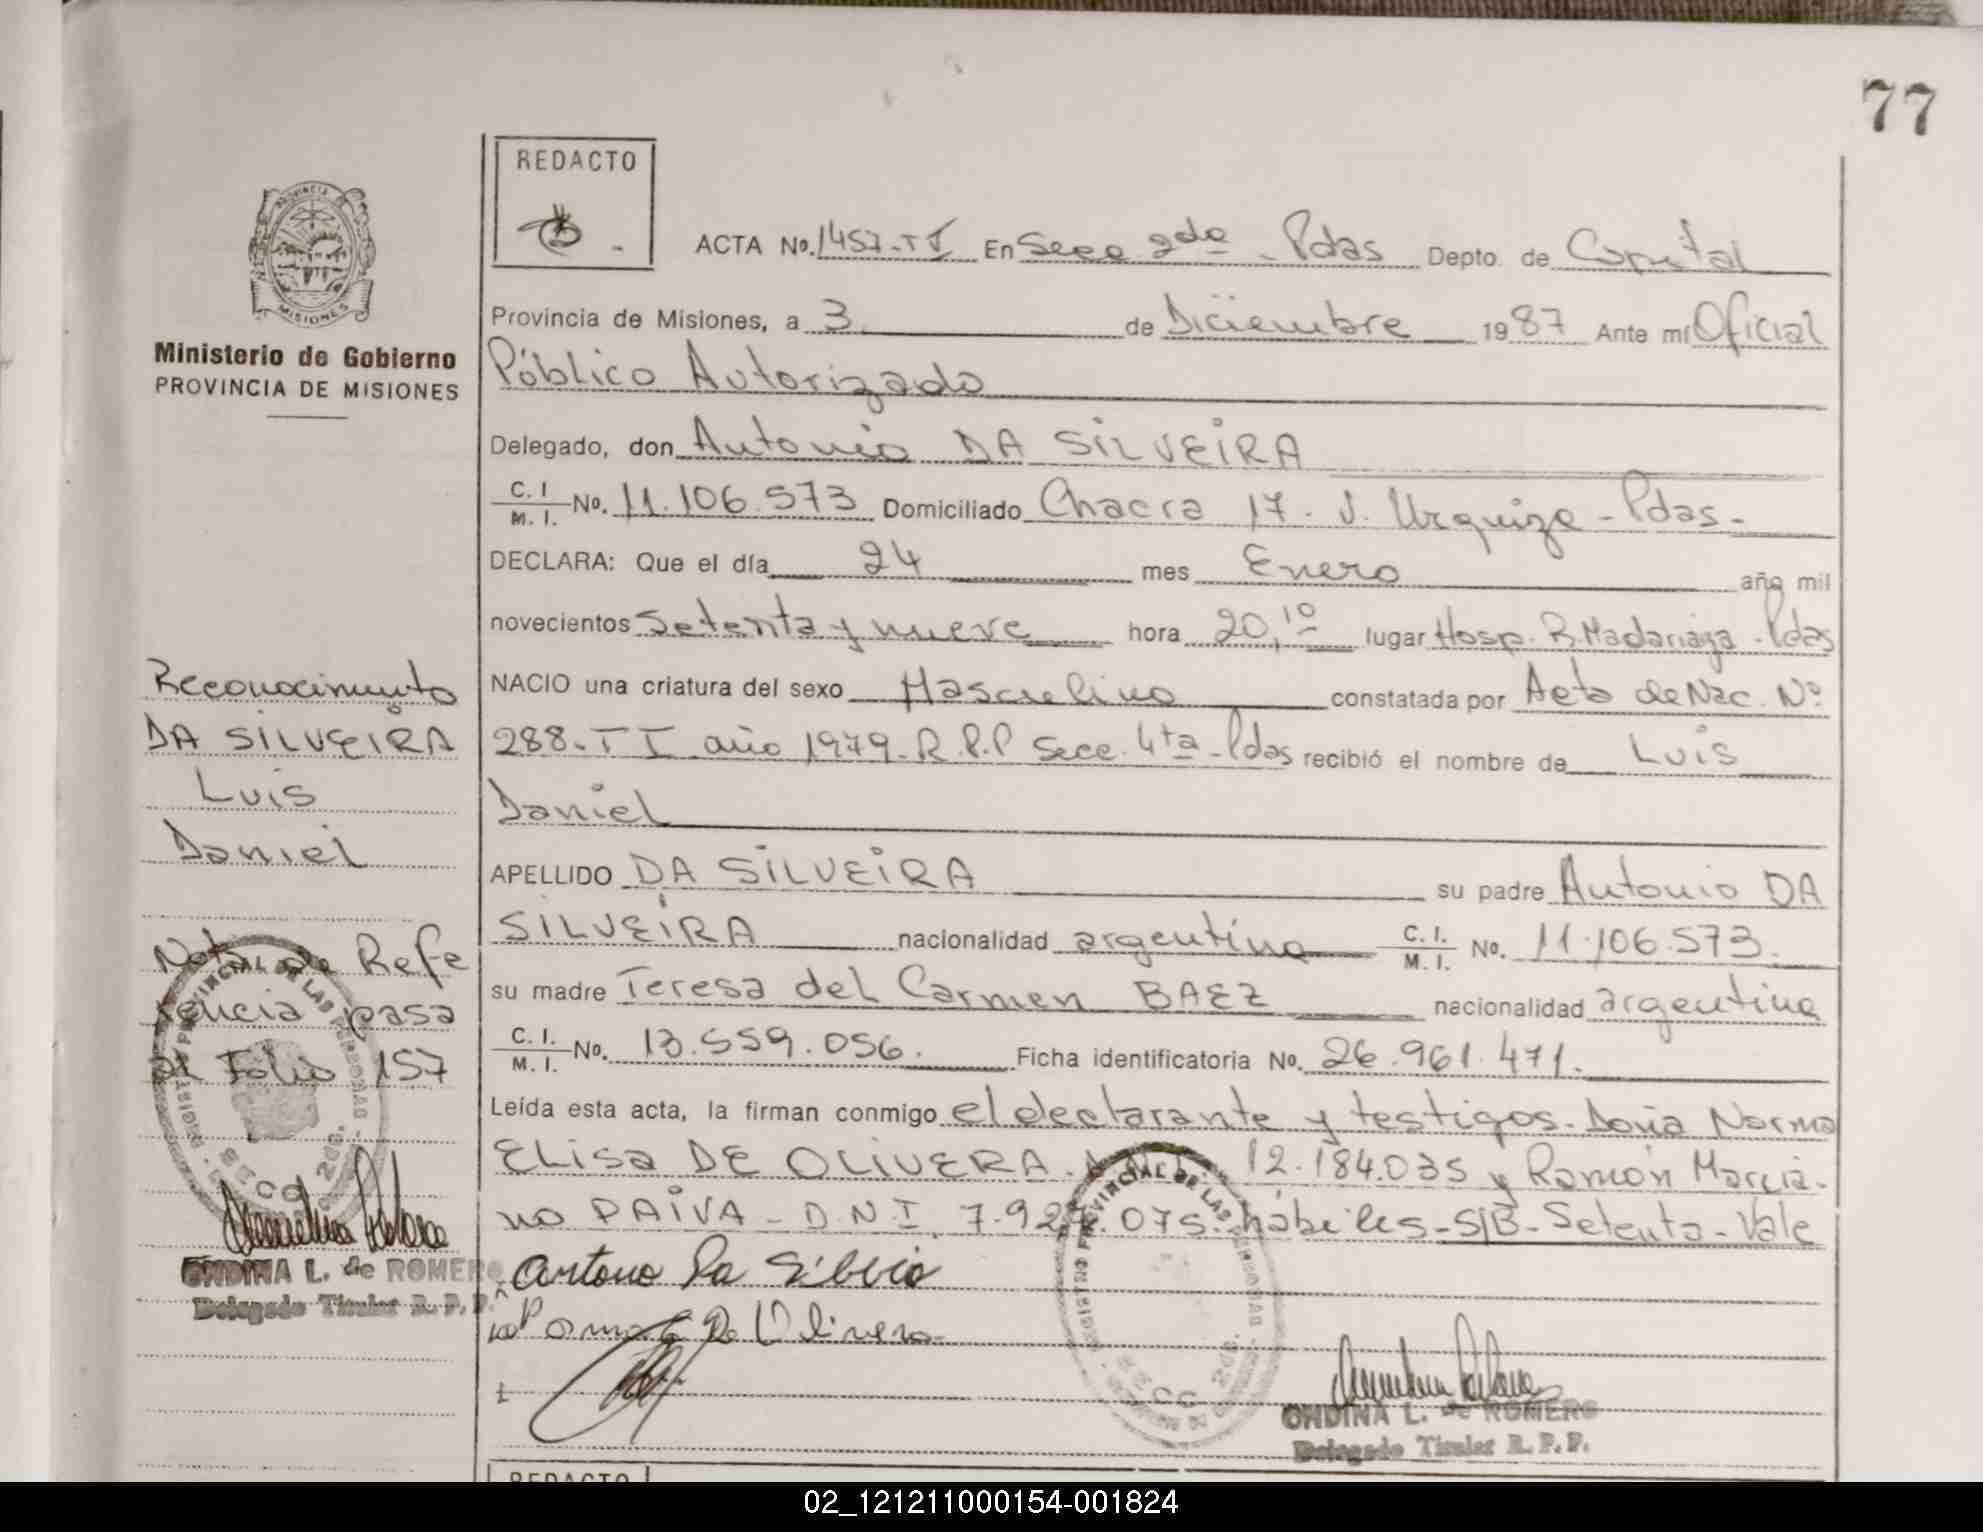 77
REDACTO
ACTA No. 1457-TI En Secc 2da - Pdas Depto. de Capital
Provincia de Misiones, a 3 de Diciembre 1987 Ante mí Oficial
Público Autorizado
Delegado, don Antonio DA SILVEIRA
C. I. / M. I. No. 11.106.573 Domiciliado Chacra 17. V. Urquiza - Pdas-
DECLARA: Que el día 24 mes Enero año mil
novecientos Setenta y nueve hora 20,10 lugar Hosp. R. Madariaga - Pdas
NACIO una criatura del sexo Masculino constatada por Acta de Nac. Nº
288-TI año 1979-R.P.P Secc. 4ta-Pdas recibió el nombre de Luis
Daniel
APELLIDO DA SILVEIRA su padre Antonio DA
SILVEIRA nacionalidad argentina C. I. / M. I. No. 11.106.573.
su madre Teresa del Carmen BAEZ nacionalidad argentina
C. I. / M. I. No. 13.559.056. Ficha identificatoria No. 26.961.471.
Leída esta acta, la firman conmigo el declarante y testigos. Doña Norma
Elisa DE OLIVERA. 12.184.035 y Ramón Marcia-
no PAIVA - D.N.I. 7.927.075. hábiles - S/B - Setenta - Vale
Antonio Da Silveira
Norma E De Olivera
ONDINA L. de ROMERO
Delegado Titular R. P. P.
REDACTO
PROVINCIA
MISIONES
Ministerio de Gobierno
PROVINCIA DE MISIONES
Reconocimiento
DA SILVEIRA
Luis
Daniel
Nota de Refe
rencia pasa
al Folio 157
ONDINA L. de ROMERO
Delegado Titular R. P. P.
REGISTRO PROVINCIAL DE LAS PERSONAS
MISIONES
SECC 2da.
REGISTRO PROVINCIAL DE LAS PERSONAS
SECC 2da.
02_121211000154-001824